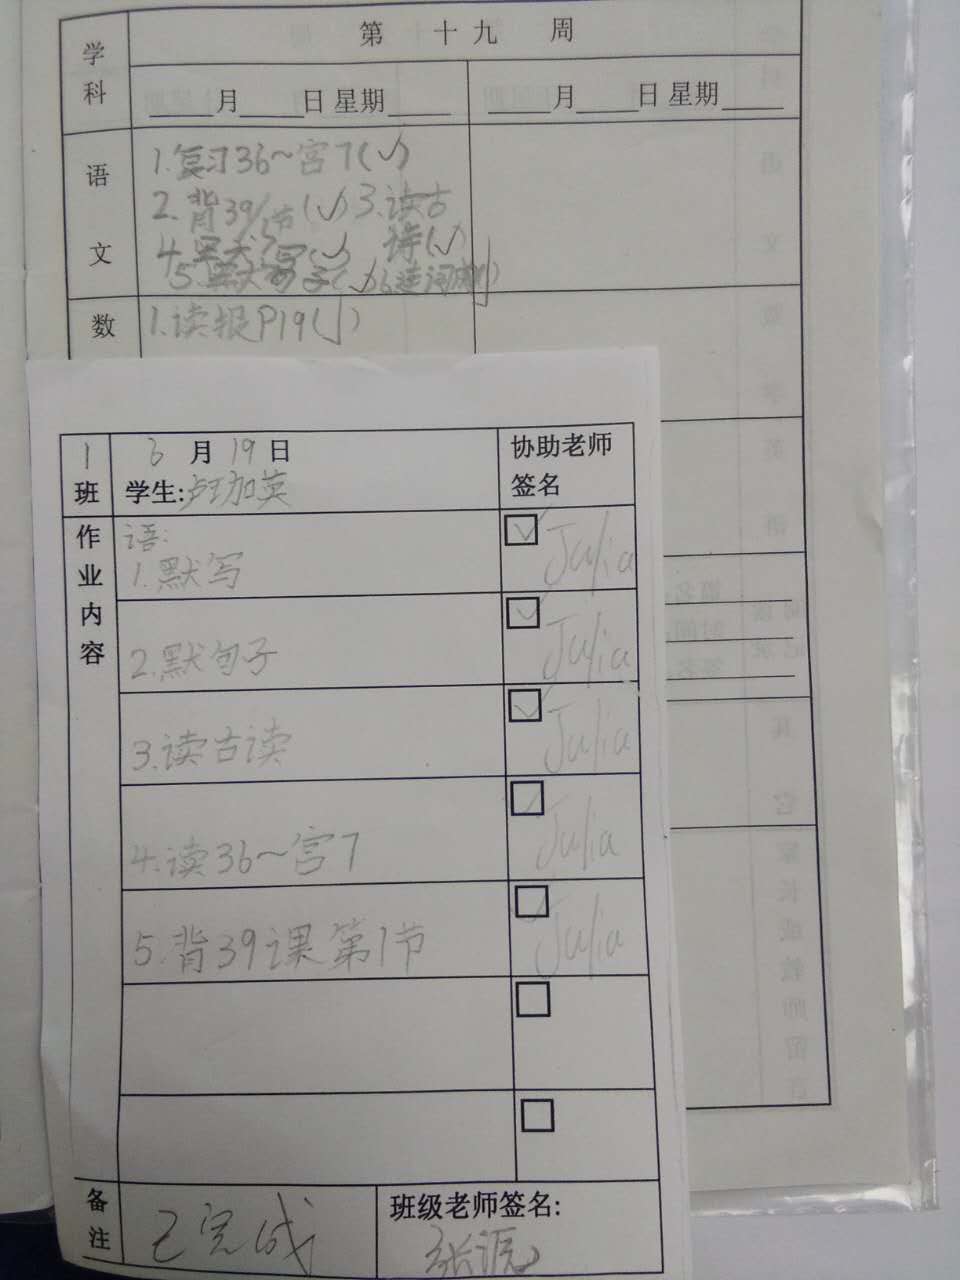 学科
第 十九 周
月 日 星期
月 日 星期
语文
1.复习36~宫7(√)
2.背39/1节(√) 3.读古诗(√)
4.默写(√)
5.默句子(√) 6.连词成句
数
1.读报P19(√)
1班
6月19日
学生:卢加英
协助老师签名
作业内容
语:
1.默写
√ Julia
2.默句子
√ Julia
3.读古读
√ Julia
4.读36~宫7
√ Julia
5.背39课第1节
√ Julia
备注
已完成
班级老师签名: